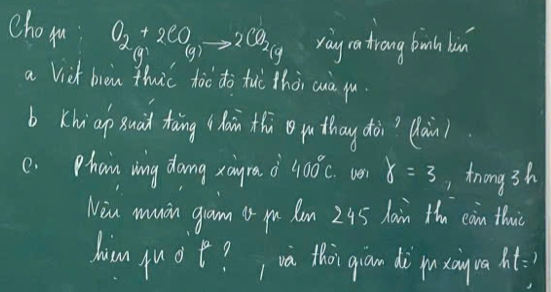 Cho pư : O₂(g) + 2CO(g) → 2CO₂(g xảy ra trong bình kín
a Viết biểu thức tốc độ tức thời của pư.
b Khi áp suất tăng 4 lần thì v pư thay đổi ? (lần) .
c. Phản ứng đang xảy ra ở 400°C. với γ = 3, trong 3h
Nếu muốn giảm v pư lên 245 lần thì cần thực
hiện pư ở t° ? , và thời gian để pư xảy ra ht = ?